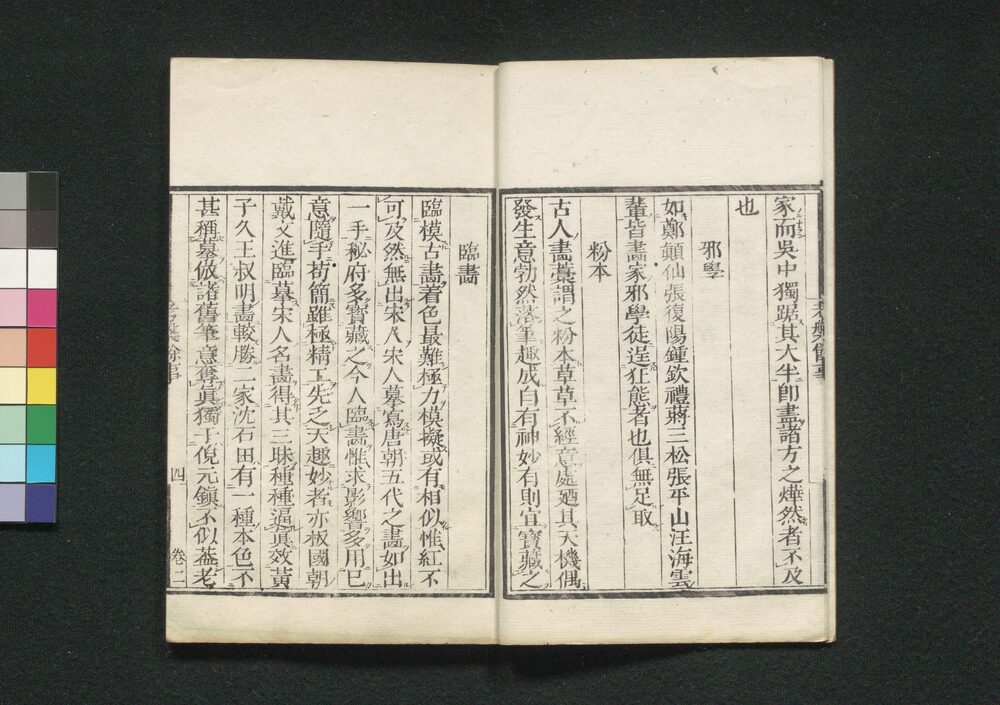 家而吳中獨踞其大半卽盡諸方之燁然者不及
也
邪學
如鄭顛仙張復陽鍾欽禮蔣三松張平山汪海雲
輩皆畵家邪學徒逞狂態者也俱無足取
粉本
古人畵藁謂之粉本草草不經意處廼其天機偶
發生意勃然落筆趣成自有神妙有則宜寶藏之
臨畵
臨模古畵着色最難極力模擬或有相似惟紅不
可及然無出宋人宋人摹寫唐朝五代之畵如出
一手秘府多寶藏之今人臨畵惟求影響多用已
意隨手苟簡雖極精工先乏天趣妙者亦板國朝
戴文進臨摹宋人名畵得其三昧種種逼眞效黃
子久王叔明畵較勝二家沈石田有一種本色不
甚稱摹倣諸舊筆意奪眞獨于倪元鎭不似葢老
餘事
四
卷二